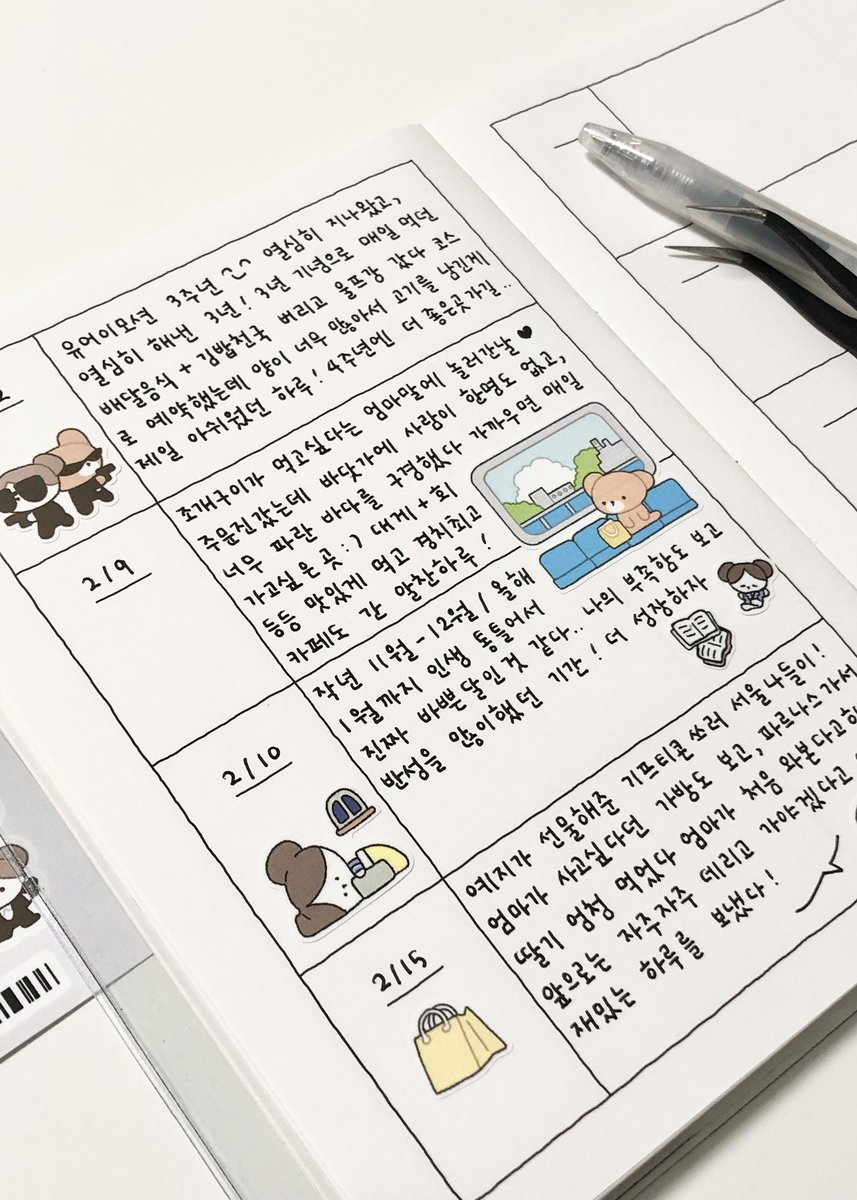 유어이모션 3주년 ~~ 열심히 지나왔고,
열심히 해낸 3년! 3년 기념으로 매일 먹던
배달음식 + 김밥천국 버리고 울프강 갔다 코스
로 예약했는데 양이 너무 많아서 고기를 남긴게
제일 아쉬웠던 하루! 4주년에 더 좋은곳가길..
2/9
조개구이가 먹고싶다는 엄마말에 놀러간날 ♥
주문진갔는데 바닷가에 사람이 한명도 없고,
너무 파란 바다를 구경했다 가까우면 매일
가고싶은곳 :) 대게 + 회
등등 맛있게 먹고 경치최고
카페도 간 알찬하루!
2/10
작년 11월-12월 / 올해
1월까지 인생 통틀어서
진짜 바쁜달인것 같다.. 나의 부족함도 보고
반성을 많이했던 기간! 더 성장하자
2/15
예지가 선물해준 기프티콘쓰러 서울나들이!
엄마가 사고싶다던 가방도 보고, 파르나스가서
딸기 엄청 먹었다 엄마가 처음 와본다고
앞으로는 자주자주 데리고 가야겠다고
재밌는 하루를 보냈다!